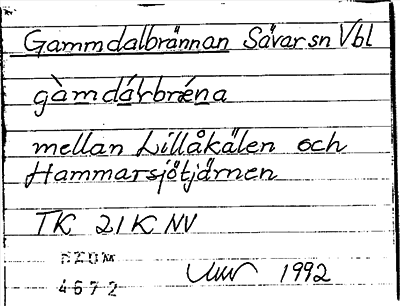 Gammdalbrännan Sävar sn Vbl
gàmdárbréna
mellan Lillåkälen och
Hammarsjötjärnen
TK 21K NV
4672
1992